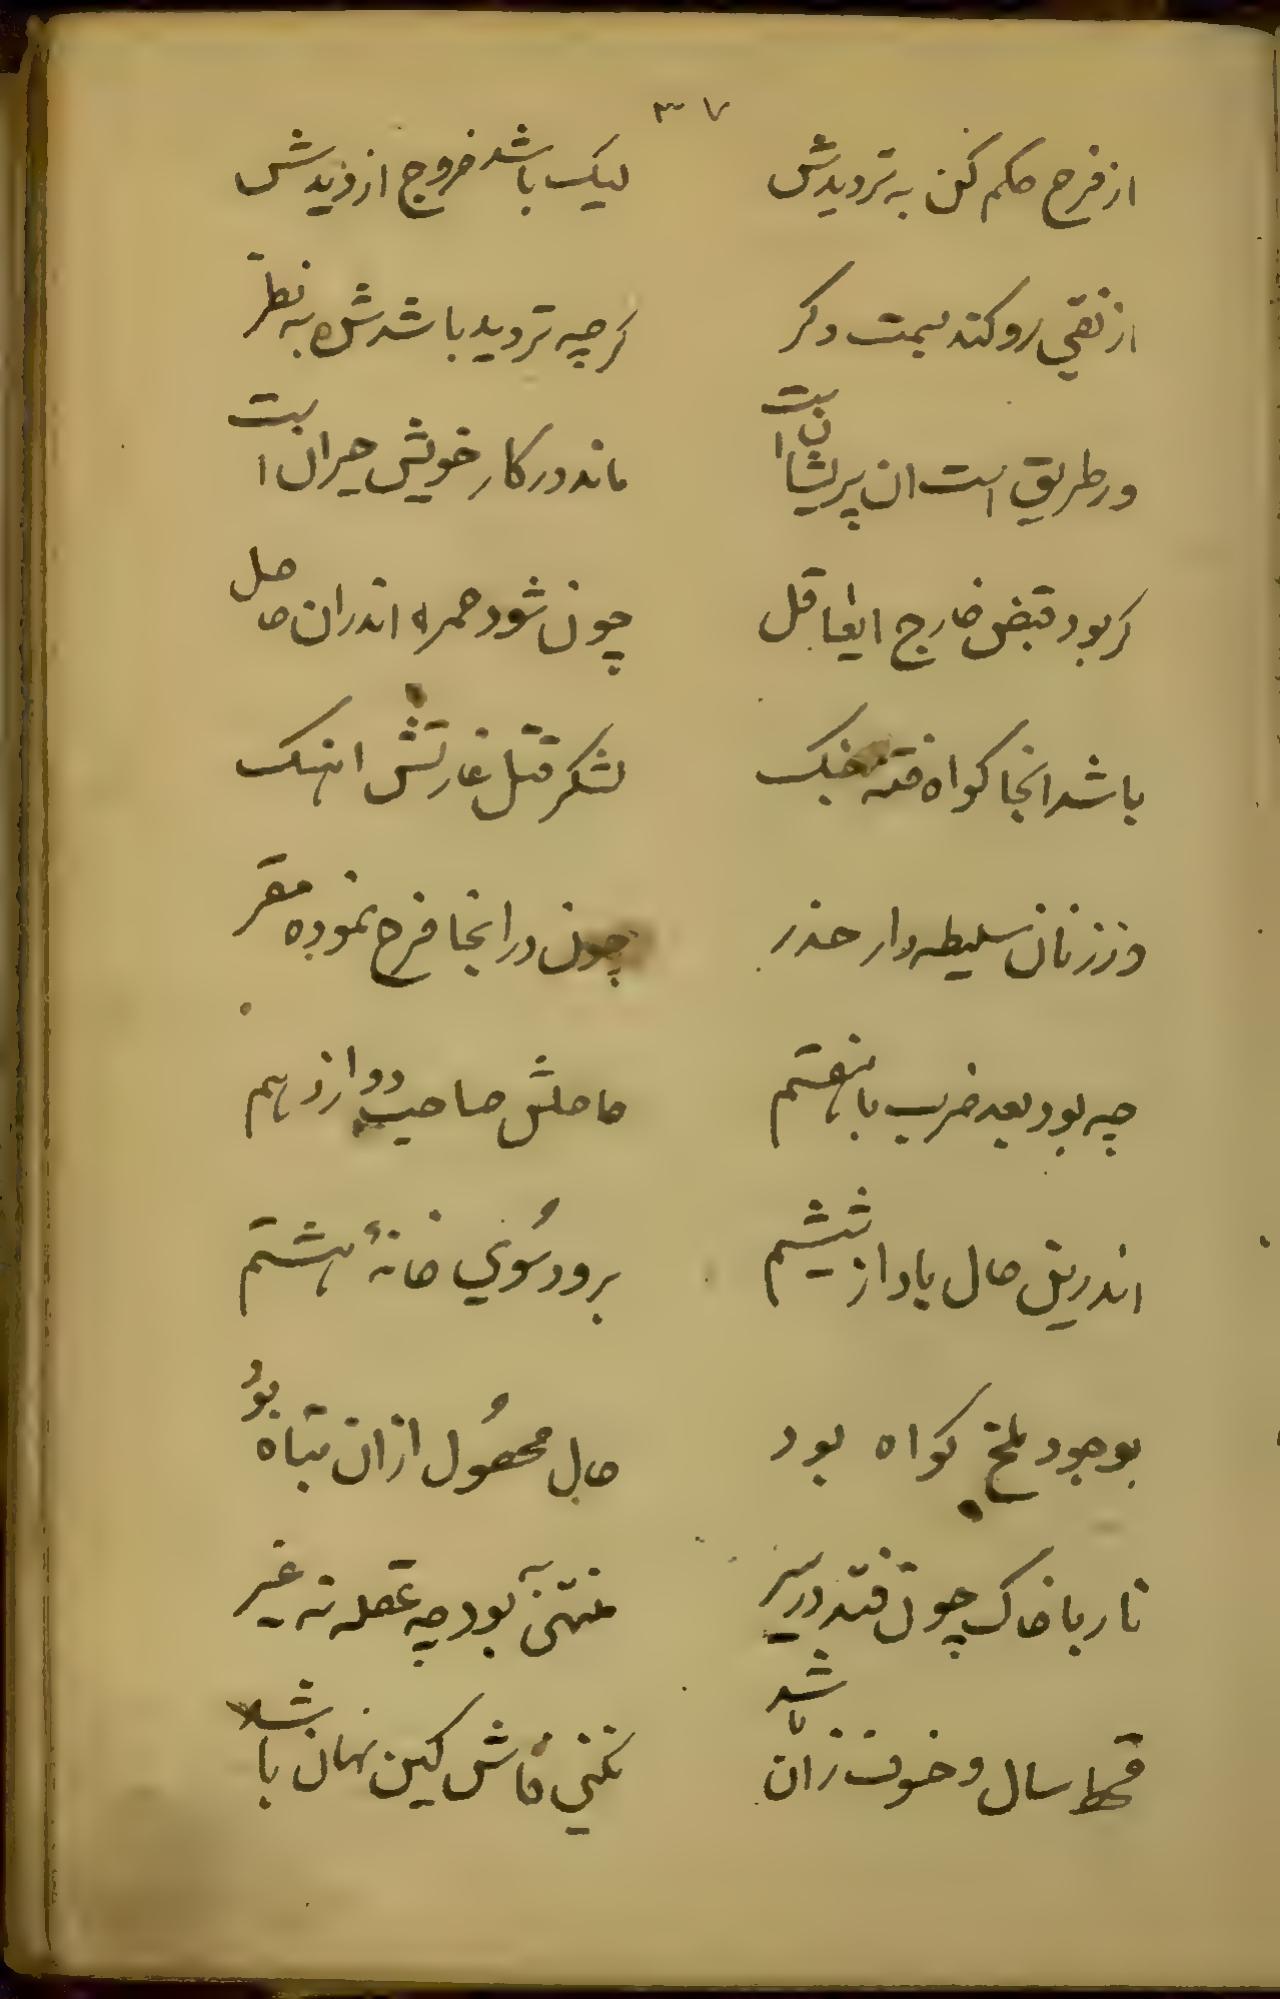 ۳۷
از فرح حکم کن به تردیدش لیک باشد خروج از دیدش
از نقی رو کند بسمت دکر کرچه تردید باشدش به نظر
ور طریق است ان پریشان است ماند در کار خویش حیران است
کر بود قبض خارج ایعاقل چون شود همره اندران حاصل
باشد انجا کواه فتنه جنک لشکر قتل غارتش اهنک
وز زنان سلیطه دار حذر چون در انجا فرح نموده مقر
چه بود بعد ضرب با هفتم حاصلش صاحب دوازدهم
اندرین حال باد از ششم برود سُوی خانهٔ هشتم
بوجود ملخ کواه بود حال محصُول ازان تباه بوُد
نار با خاک چون فتد در سیر منتهی بود چه عقله نه غیر
قحط سال و خوف زان باشد نکنی فاش کین نهان باشد